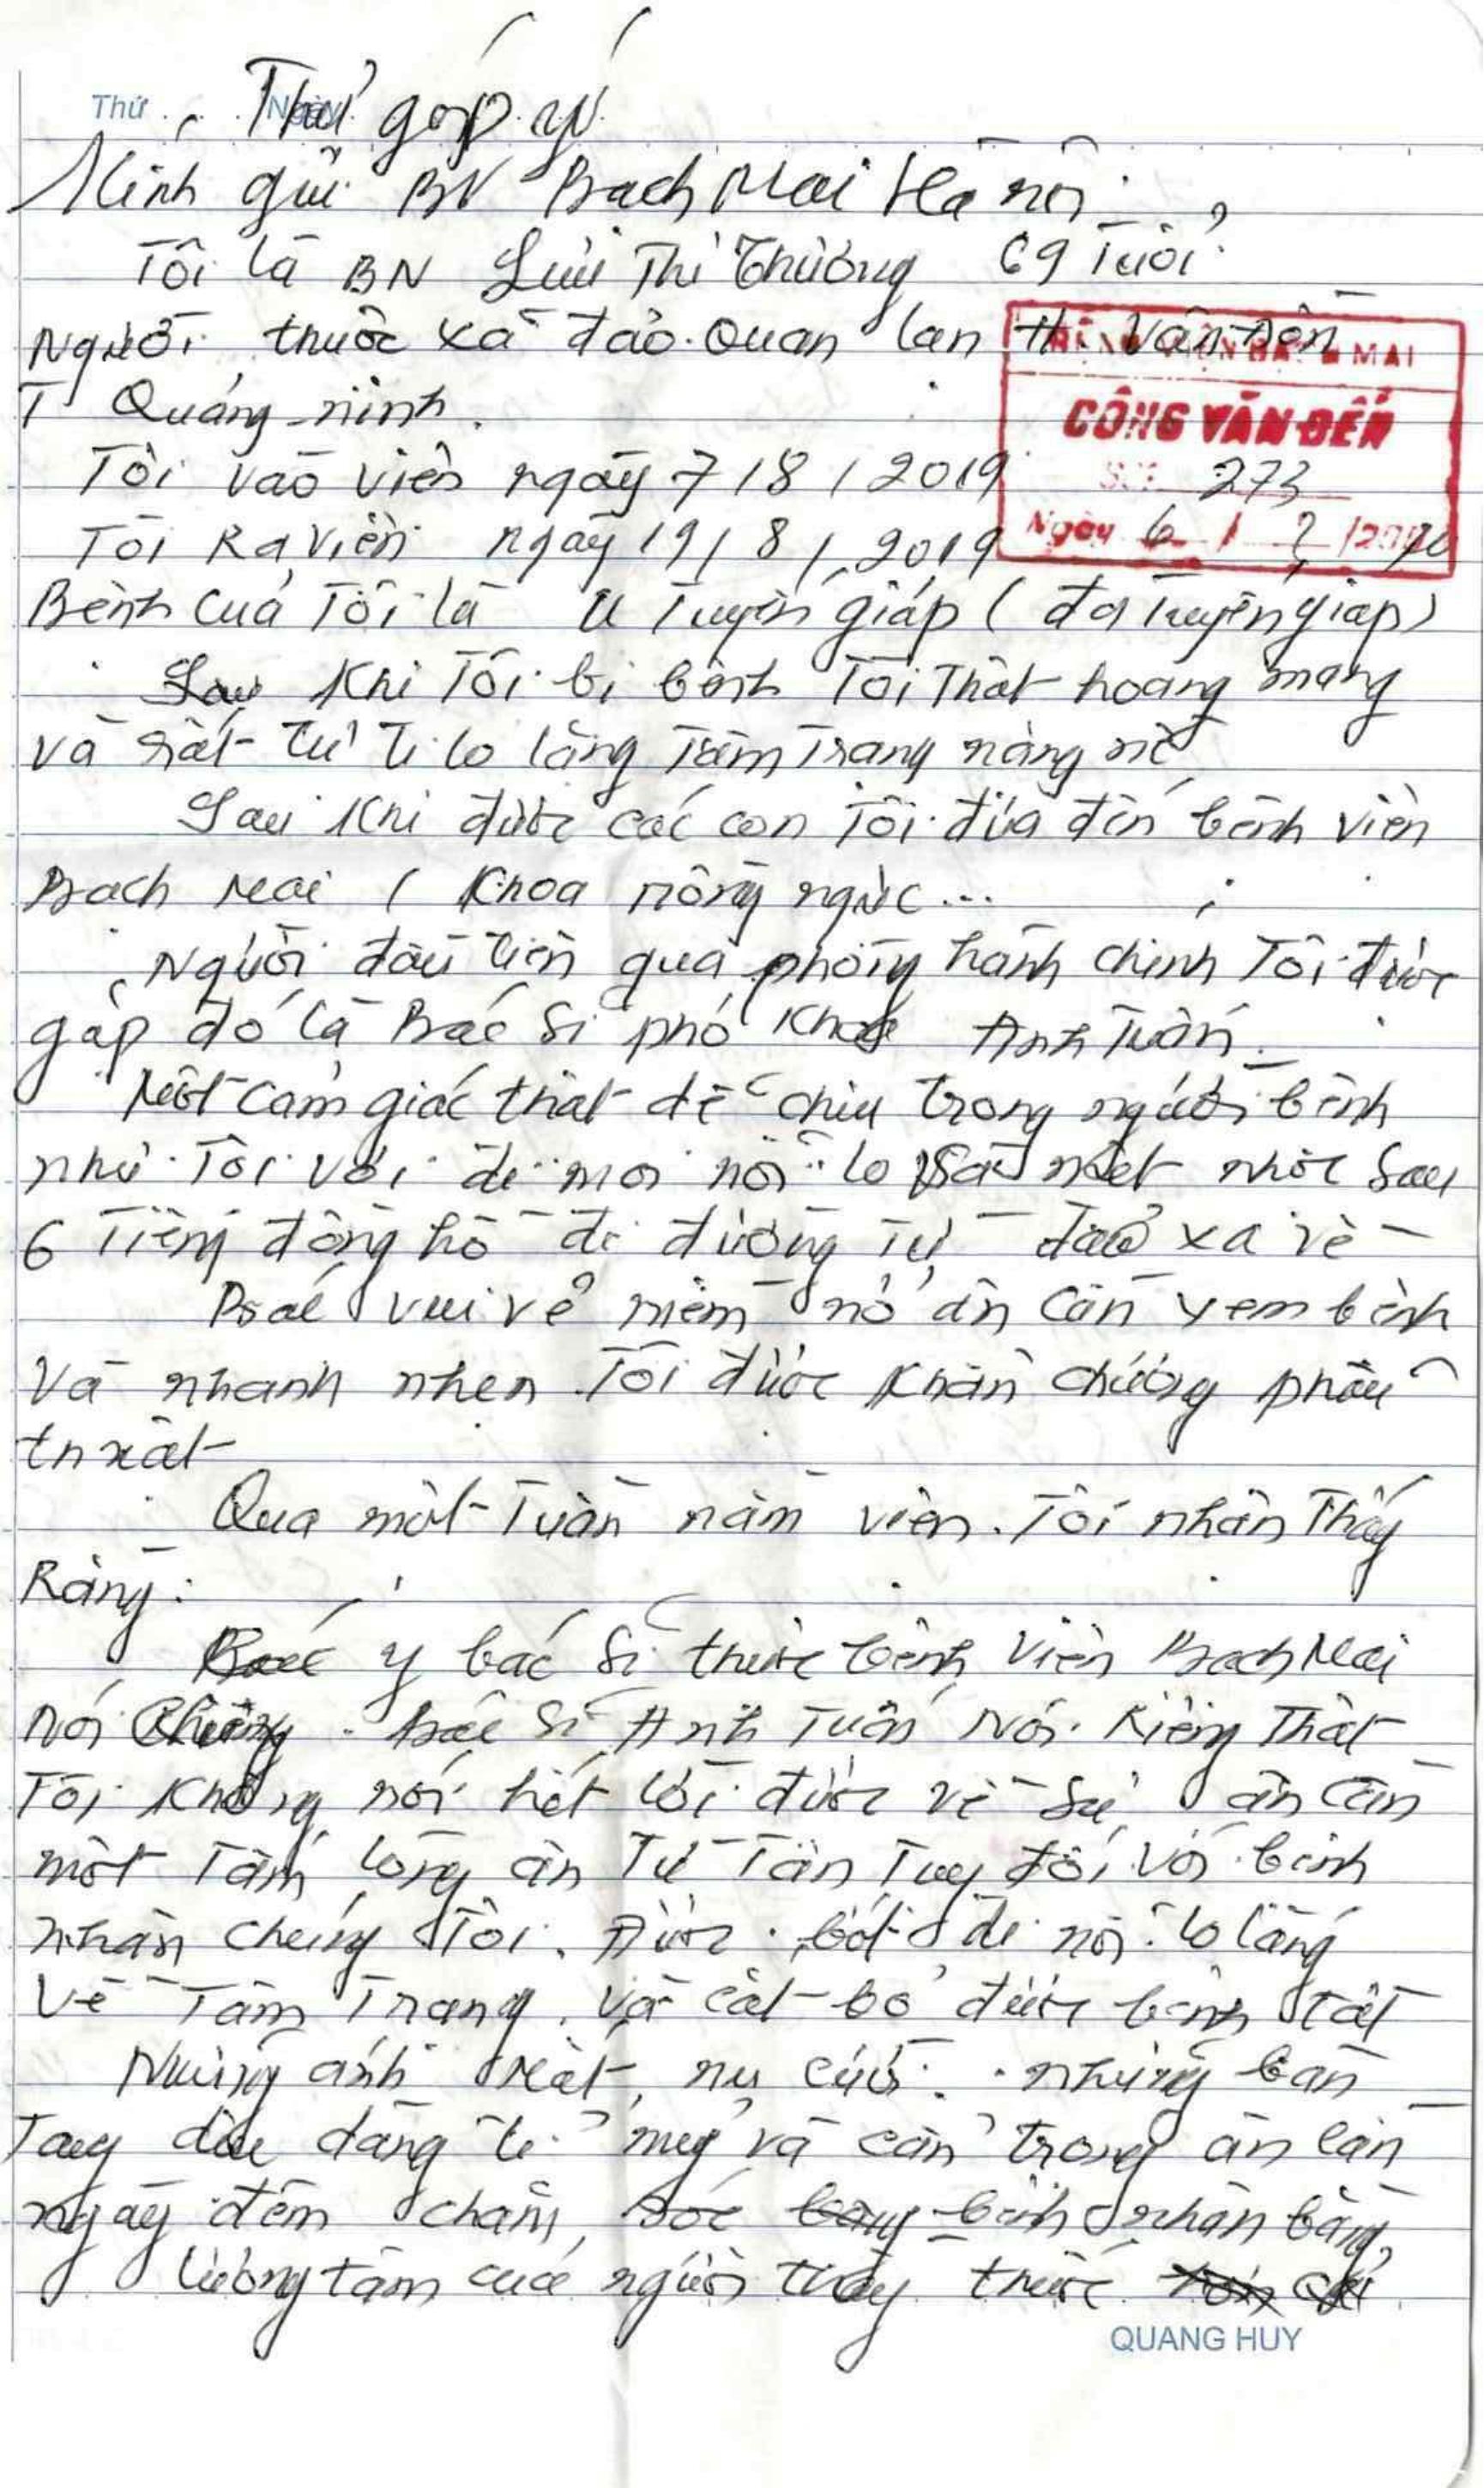 Thứ Ngày
Thư góp ý
Kính gửi BV Bạch Mai Hà nội
Tôi là BN Lưu Thị Thường 69 Tuổi
Người thuộc xã đảo Quan lạn H. Vân Đồn
T Quảng ninh.
BỆNH VIỆN BẠCH MAI
CÔNG VĂN ĐẾN
Số: 273
Ngày 6 / 2 /2020
Tôi vào viện ngày 7/8/2019
Tôi Ra viện ngày 19/8/2019
Bệnh của Tôi là U Tuyến giáp (đa Tuyến giáp)
Sau Khi Tôi bị bệnh Tôi Thật hoang mang
và rất Tự Ti lo lắng Tâm Trạng nặng nề
Sau Khi được các con Tôi đưa đến bệnh viện
Bạch Mai ( Khoa nồng ngực...
Người đầu tiên qua phòng hành chính Tôi được
gặp đó là Bác Sĩ phó Khoa Anh Tuấn.
Một cảm giác thật dễ chịu trong người bệnh
như Tôi vơi đi mọi nỗi lo và mệt nhọc sau
6 Tiếng đồng hồ đi đường Từ đảo xa về
Bác vui vẻ niềm nở ân cần xem bệnh
Và nhanh nhẹn Tôi được Khẩn chương phẫu
thuật
Qua một Tuần nằm viện. Tôi nhận Thấy
Rằng:
Các y bác sĩ thuộc bệnh viện Bạch Mai
Nói Chung. bác sĩ Anh Tuấn Nói Riêng Thật
Tôi Không nói hết lời được về sự ân cần
một Tấm lòng ân Từ Tận Tụy đối với bệnh
nhân chúng Tôi. Được bớt đi nỗi lo lắng
Về Tâm Trạng. và cắt bỏ được bệnh tật
Những ánh Mắt, nụ cười. những bàn
Tay dịu dàng tỉ mỷ và cẩn trọng ân cần
ngày đêm chăm sóc bệnh nhân bằng
lương tâm của người thầy thuốc
QUANG HUY